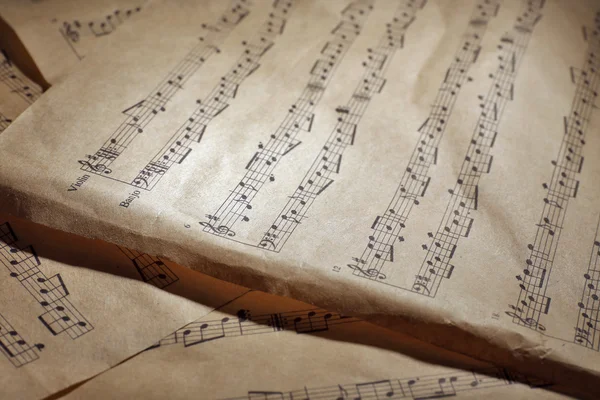 Violin
Banjo
6
12